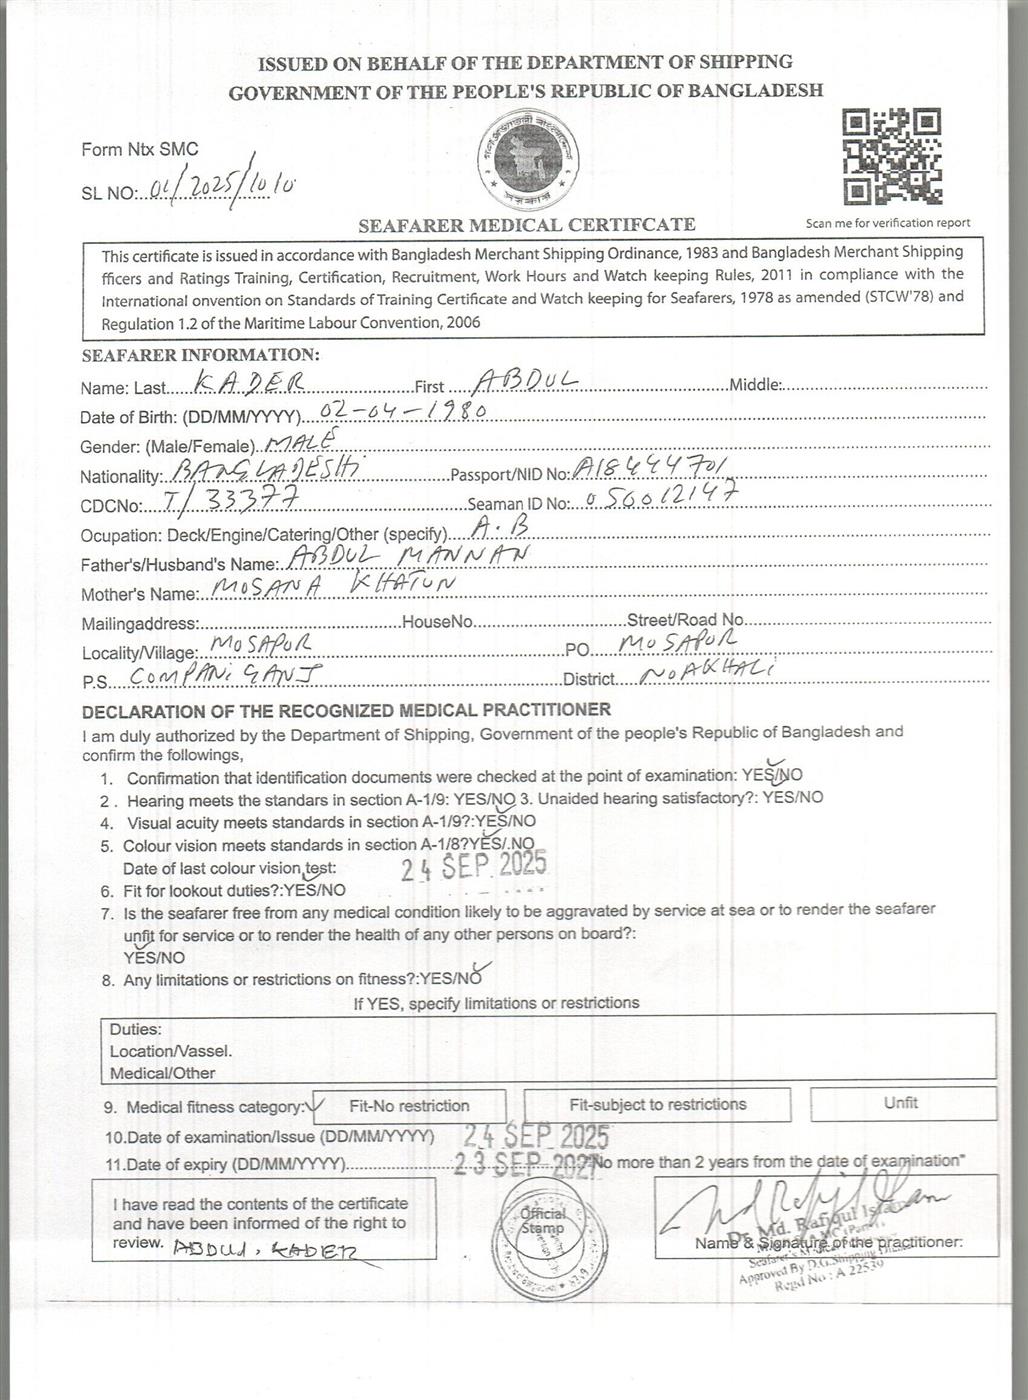 ISSUED ON BEHALF OF THE DEPARTMENT OF SHIPPING
GOVERNMENT OF THE PEOPLE'S REPUBLIC OF BANGLADESH
Form Ntx SMC
SL NO:..01/2025/1010
Scan me for verification report
SEAFARER MEDICAL CERTIFCATE
This certificate is issued in accordance with Bangladesh Merchant Shipping Ordinance, 1983 and Bangladesh Merchant Shipping
fficers and Ratings Training, Certification, Recruitment, Work Hours and Watch keeping Rules, 2011 in compliance with the
International onvention on Standards of Training Certificate and Watch keeping for Seafarers, 1978 as amended (STCW'78) and
Regulation 1.2 of the Maritime Labour Convention, 2006
SEAFARER INFORMATION:
Name: Last....KADER....First....ABDUL....Middle:....
Date of Birth: (DD/MM/YYYY)....02-04-1980
Gender: (Male/Female)..MALE
Nationality:..BANGLADESHi....Passport/NID No:..A18444701
CDCNo:....T/33377....Seaman ID No:...050012147
Ocupation: Deck/Engine/Catering/Other (specify)....A.B
Father's/Husband's Name:..ABDUL MANNAN
Mother's Name:..MOSANA KHATUN
Mailingaddress:....HouseNo....Street/Road No....
Locality/Village:..MOSAPUR....PO....MOSAPUR
P.S....COMPANiGANJ....District....NOAKHALi
DECLARATION OF THE RECOGNIZED MEDICAL PRACTITIONER
I am duly authorized by the Department of Shipping, Government of the people's Republic of Bangladesh and
confirm the followings,
1. Confirmation that identification documents were checked at the point of examination: YES/NO
2 . Hearing meets the standars in section A-1/9: YES/NO 3. Unaided hearing satisfactory?: YES/NO
4. Visual acuity meets standards in section A-1/9?:YES/NO
5. Colour vision meets standards in section A-1/8?YES/.NO
Date of last colour vision test: 24 SEP 2025
6. Fit for lookout duties?:YES/NO
7. Is the seafarer free from any medical condition likely to be aggravated by service at sea or to render the seafarer
unfit for service or to render the health of any other persons on board?:
YES/NO
8. Any limitations or restrictions on fitness?:YES/NO
If YES, specify limitations or restrictions
Duties:
Location/Vassel.
Medical/Other
9. Medical fitness category: Fit-No restriction Fit-subject to restrictions Unfit
10.Date of examination/Issue (DD/MM/YYYY) 24 SEP 2025
11.Date of expiry (DD/MM/YYYY)....23 SEP 2027 "No more than 2 years from the date of examination"
I have read the contents of the certificate
and have been informed of the right to
review. ABDUL. KADER
Official
Stamp
Dr. Md. Rafiqul Islam
Name & Signature of the practitioner:
Approved By D.G.Shipping
Regd No : A 22539